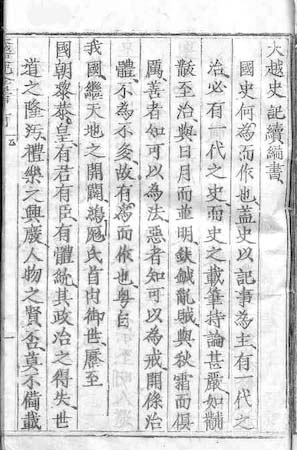 大越史記續編書
國史何為而作也盖史以記事為主有一代之
治必有一代之史而史之載筆持論甚嚴如黼
黻至治與日月而並明鈇鉞亂賊與秋霜而俱
厲善者知可以為法惡者知可以為戒開係治
體不為不多故有為而作也粤自
我國繼天地之開闢鴻厖氏首出御世歷至
國朝黎恭皇有君有臣有體統其政治之得失世
道之隆污禮樂之興廢人物之賢否莫不備載